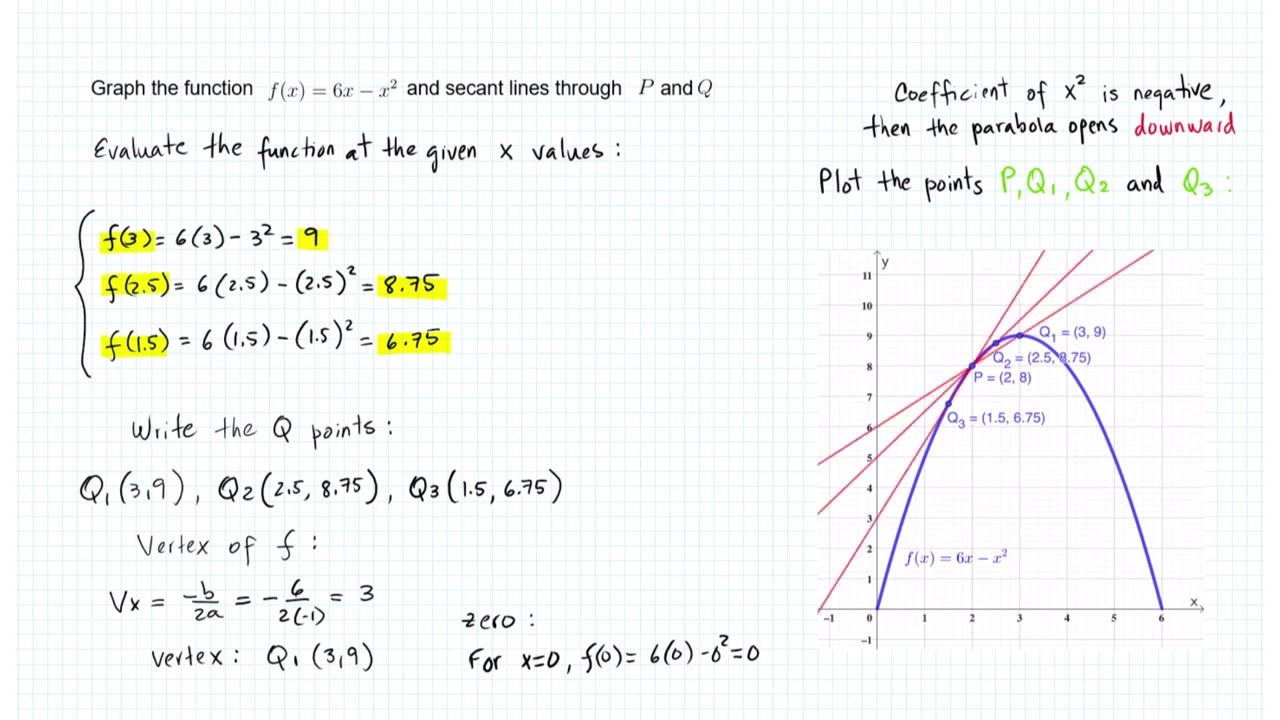 Graph the function f(x) = 6x − x² and secant lines through P and Q
Evaluate the function at the given x values:
f(3) = 6(3) − 3² = 9
f(2.5) = 6(2.5) − (2.5)² = 8.75
f(1.5) = 6(1.5) − (1.5)² = 6.75
Write the Q points:
Q₁(3,9), Q2(2.5, 8.75), Q3(1.5, 6.75)
Vertex of f:
Vx = −b/2a = −6/2(−1) = 3
vertex: Q₁(3,9)
zero:
For x=0, f(0) = 6(0) − 0² = 0
Coefficient of x² is negative,
then the parabola opens downward
Plot the points P, Q₁, Q2 and Q3:
y
11
10
9
8
7
6
5
4
3
2
1
−1
Q₁ = (3, 9)
Q₂ = (2.5, 8.75)
P = (2, 8)
Q₃ = (1.5, 6.75)
f(x) = 6x − x²
x
−1 0 1 2 3 4 5 6